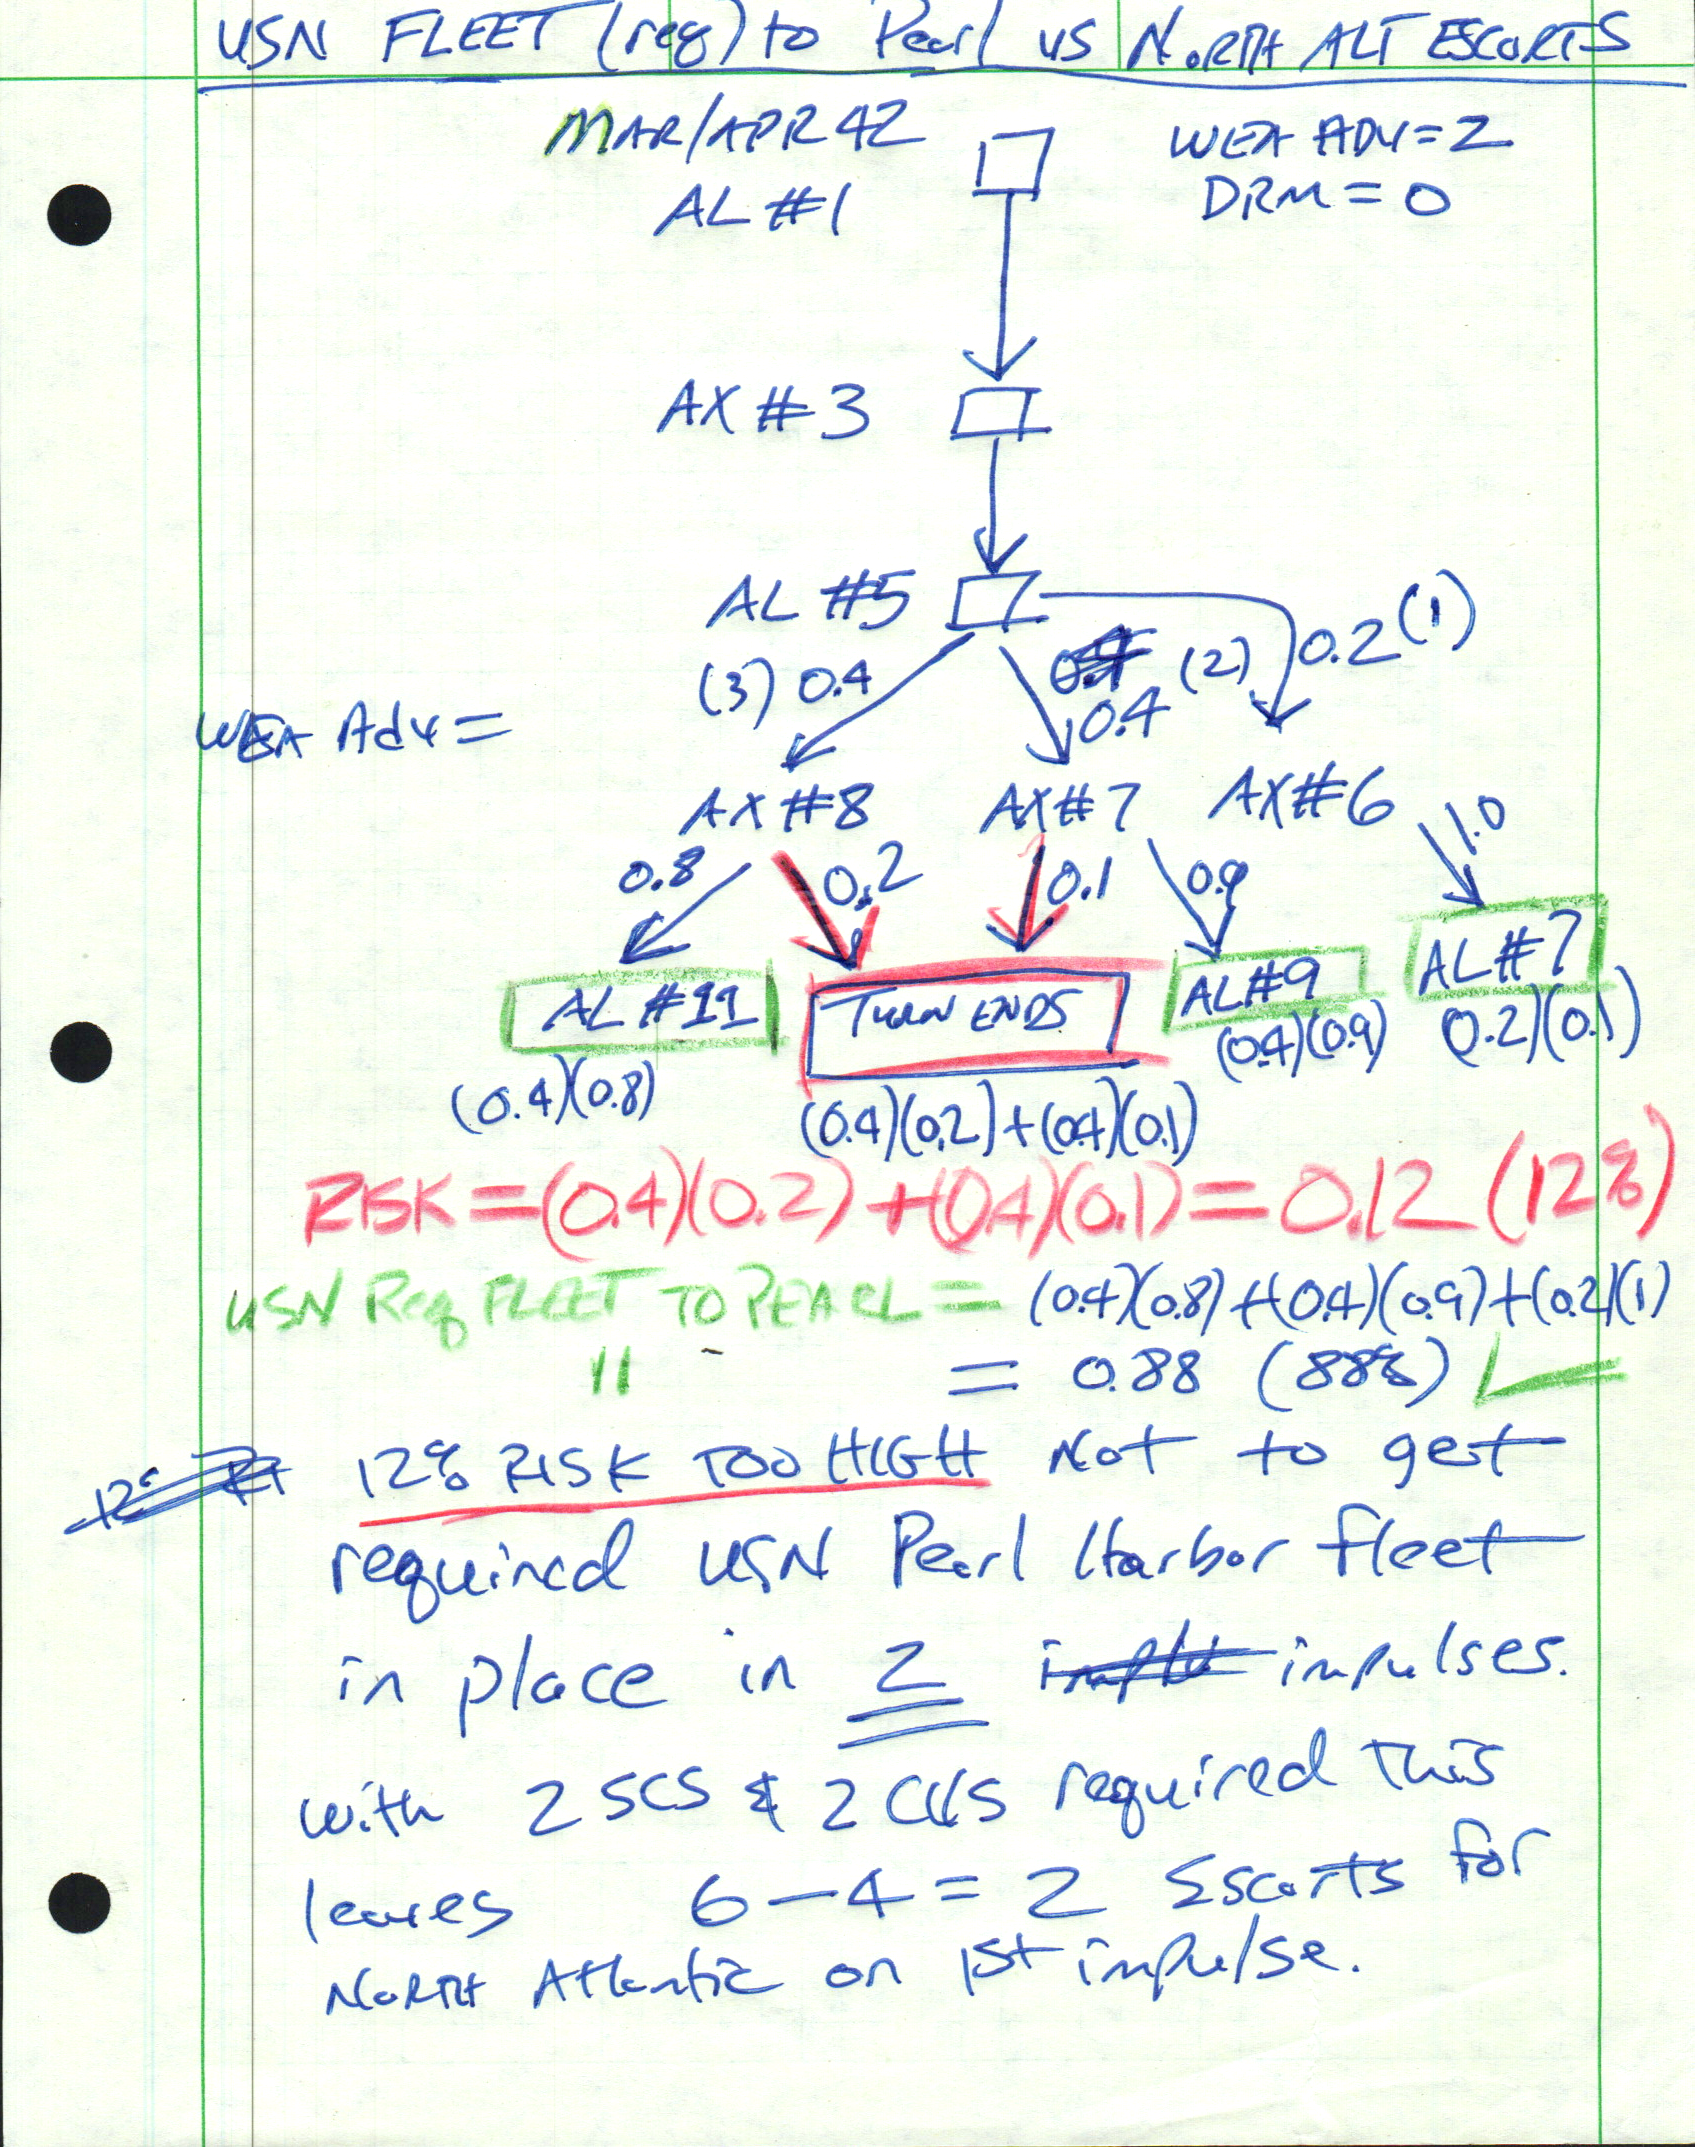 USN FLEET (req) to Pearl vs NORTH ALT ESCORTS
MAR/APR 42
WEA ADV = 2
AL #1
DRM = 0
AX #3
AL #5
(3) 0.4
(2)
0.4
0.2 (1)
WEA Adv =
AX #8
AX #7
AX #6
0.8
0.2
0.1
0.9
1.0
AL #11
TURN ENDS
AL #9
AL #7
(0.4)(0.8)
(0.4)(0.2) + (0.4)(0.1)
(0.4)(0.9)
(0.2)(0.1)
RISK = (0.4)(0.2) + (0.4)(0.1) = 0.12 (12%)
USN Req FLEET TO PEARL = (0.4)(0.8) + (0.4)(0.9) + (0.2)(1)
" = 0.88 (88%)
12% RISK TOO HIGH Not to get
required USN Pearl Harbor fleet
in place in 2 impulses.
with 2 SCS & 2 CVS required this
leaves 6 - 4 = 2 Escorts for
NORTH Atlantic on 1st impulse.